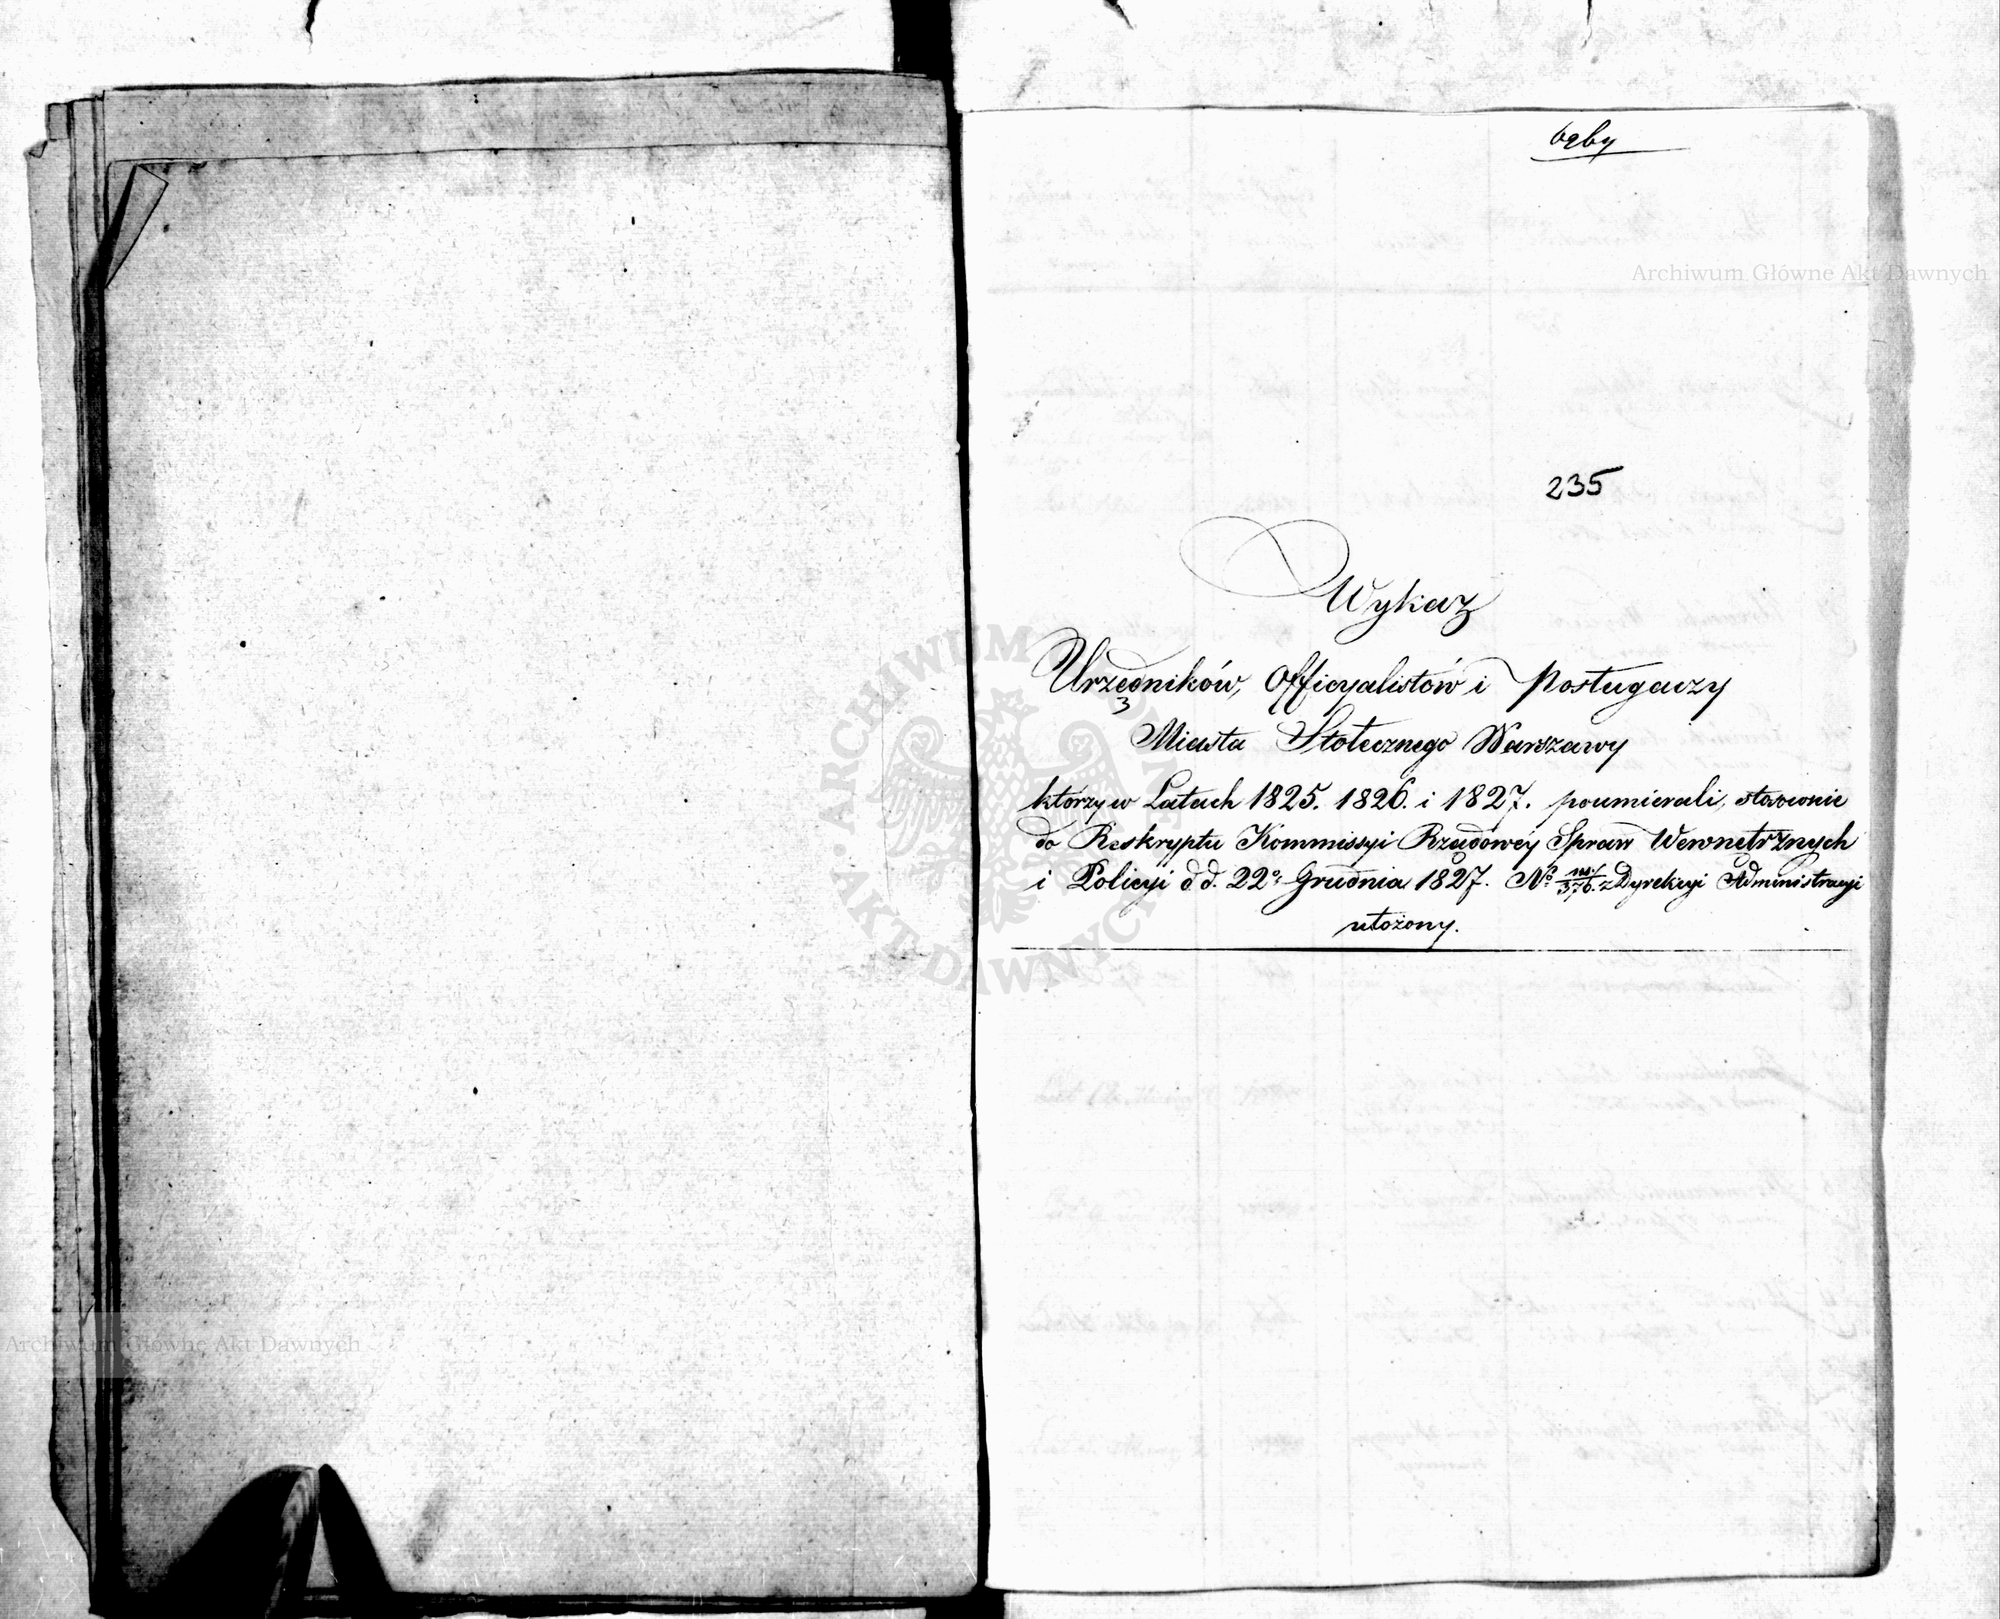 235
Wykaz
Urzędników, Officyalistów i Posługaczy
Miasta Stołecznego Warszawy
którzy w Latach 1825. 1826. i 1827. poumierali, stosownie
do Reskryptu Kommissyi Rządowéy Spraw Wewnętrznych
i Policyi d d. 22º Grudnia 1827. Nº z Dyrekcyi Administracyi
ułożony.
Archiwum Główne Akt Dawnych
Archiwum Główne Akt Dawnych
ARCHIWUM GŁÓWNE AKT DAWNYCH